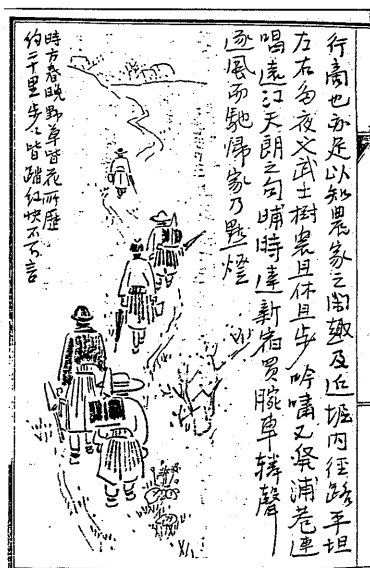 行商也亦足以知農家之閑趣及近堀内徑路平坦
左右多夜叉武士樹農且休且步吟嘯又發浦巷連
唱遠江天朗之句晡時達新宿買腕車轔聲
逐風而馳歸家乃點燈
時方春晚野草皆花所歷
約二千里步々皆踏紅快不可言